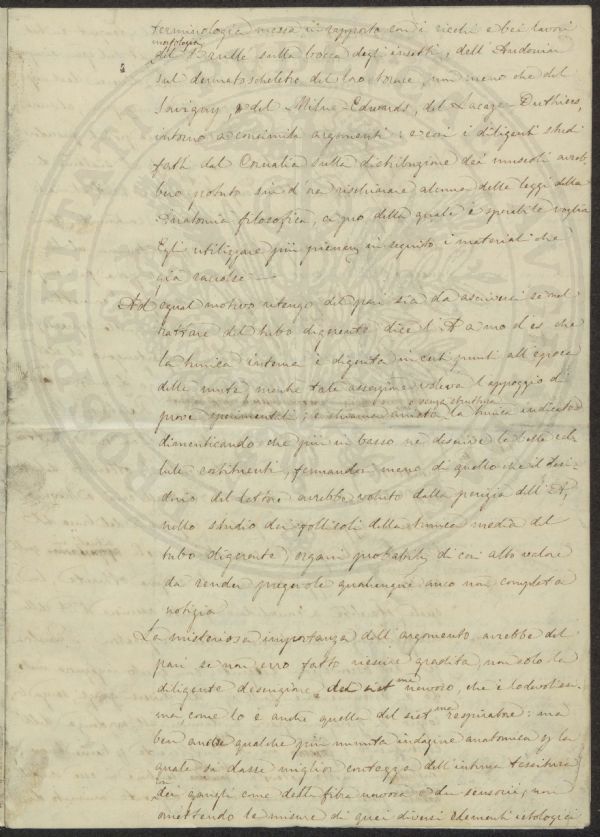 terminologia messa in rapporto con i ricchi e bei lavori
morfologici
del Brullé sulla bocca degli insetti, dell'Audouin
sul dermatoscheletro del loro torace, non meno che del
Savigny, e del Milne-Edwards, del Lacaze-Duthiers,
intorno a consimili argomenti: e con i diligenti studi
fatti dal Cornalia sulla distribuzione dei muscoli avreb-
bero potuto sin d'ora rischiarare alcuna delle leggi della
Anatomia filosofica, a pro della quale è sperabile voglia
Egli utilizzare più pienam. in seguito i materiali che
già raccolse.—
Ad egual motivo ritengo del pari sia da ascriversi se nel
trattare del tubo digerente dice l'A a mo d'es che
la tunica interna è digerita in certi punti all'epoca
delle mute mentre tale asserzione voleva l'appoggio di
prove sperimentali; e chiama amorfa la tunica indicata
e senza struttura
dimenticando che più in basso ne descrive le belle cel-
lule costituenti, fermandosi meno di quello che il desi-
derio del lettore avrebbe voluto dalla perizia dell'A,
nello studio dei follicoli della tunica media del
tubo digerente, organi probabilm. di così alto valore
da render pregevole qualunque anco non completa
notizia
La misteriosa importanza dell'argomento, avrebbe del
pari se non erro fatto riescire gradita, non solo la
diligente descrizione del sistma nervoso, che è lodevolissi-
ma come lo è anche quella del sistma respiratore: ma
ben anche qualche più minuta indagine anatomica p la
quale si dasse miglior contezza dell'intima tessitura
dei gangli come della fibra nervosa e dei sensorii, non
omettendo le misure di quei diversi elementi istologici